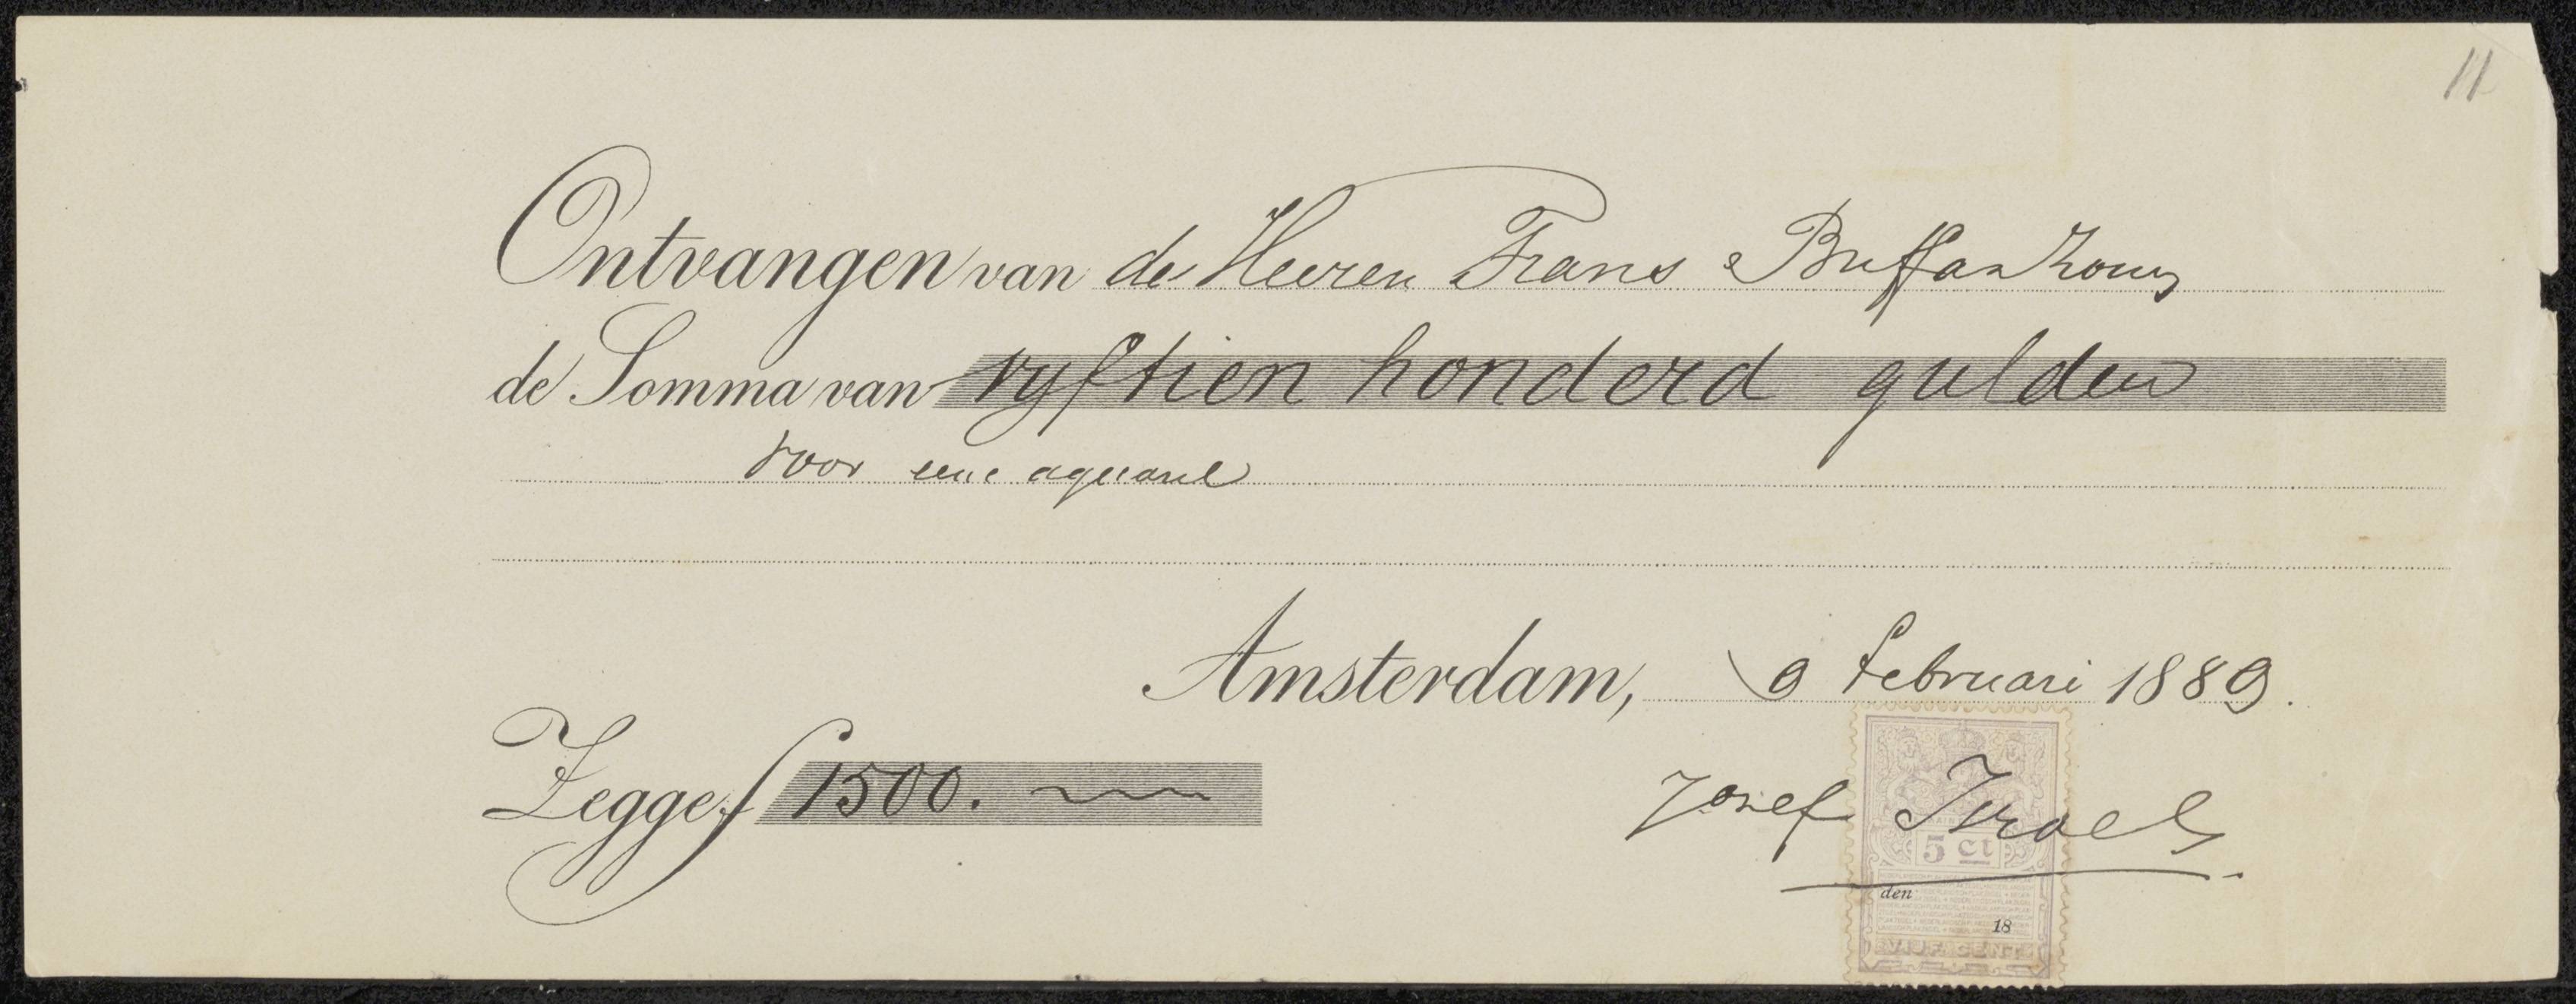 11
Ontvangen van de Heeren Frans Buffa & Zonen
de Somma van vyftien honderd gulden
voor eene aquarel
Amsterdam, 9 Februari 1889.
Zegge f 1500.
Jozef Israels
5 ct
den
18
VIJF CENT